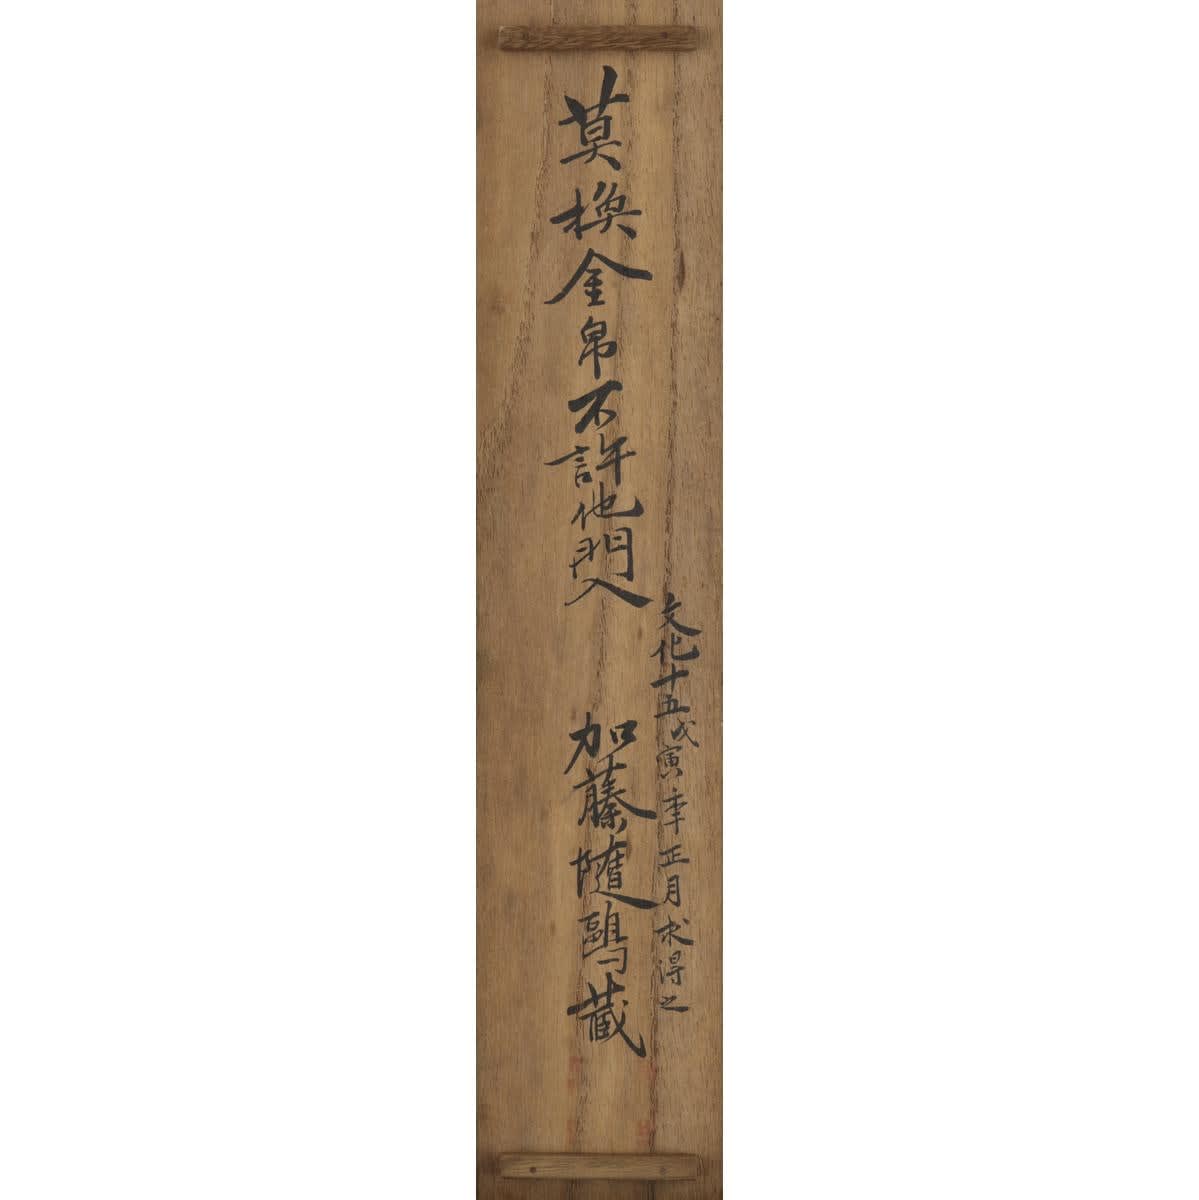 文化十五戊寅季正月求得之
莫換金帛不許他門入
加藤随鷗蔵